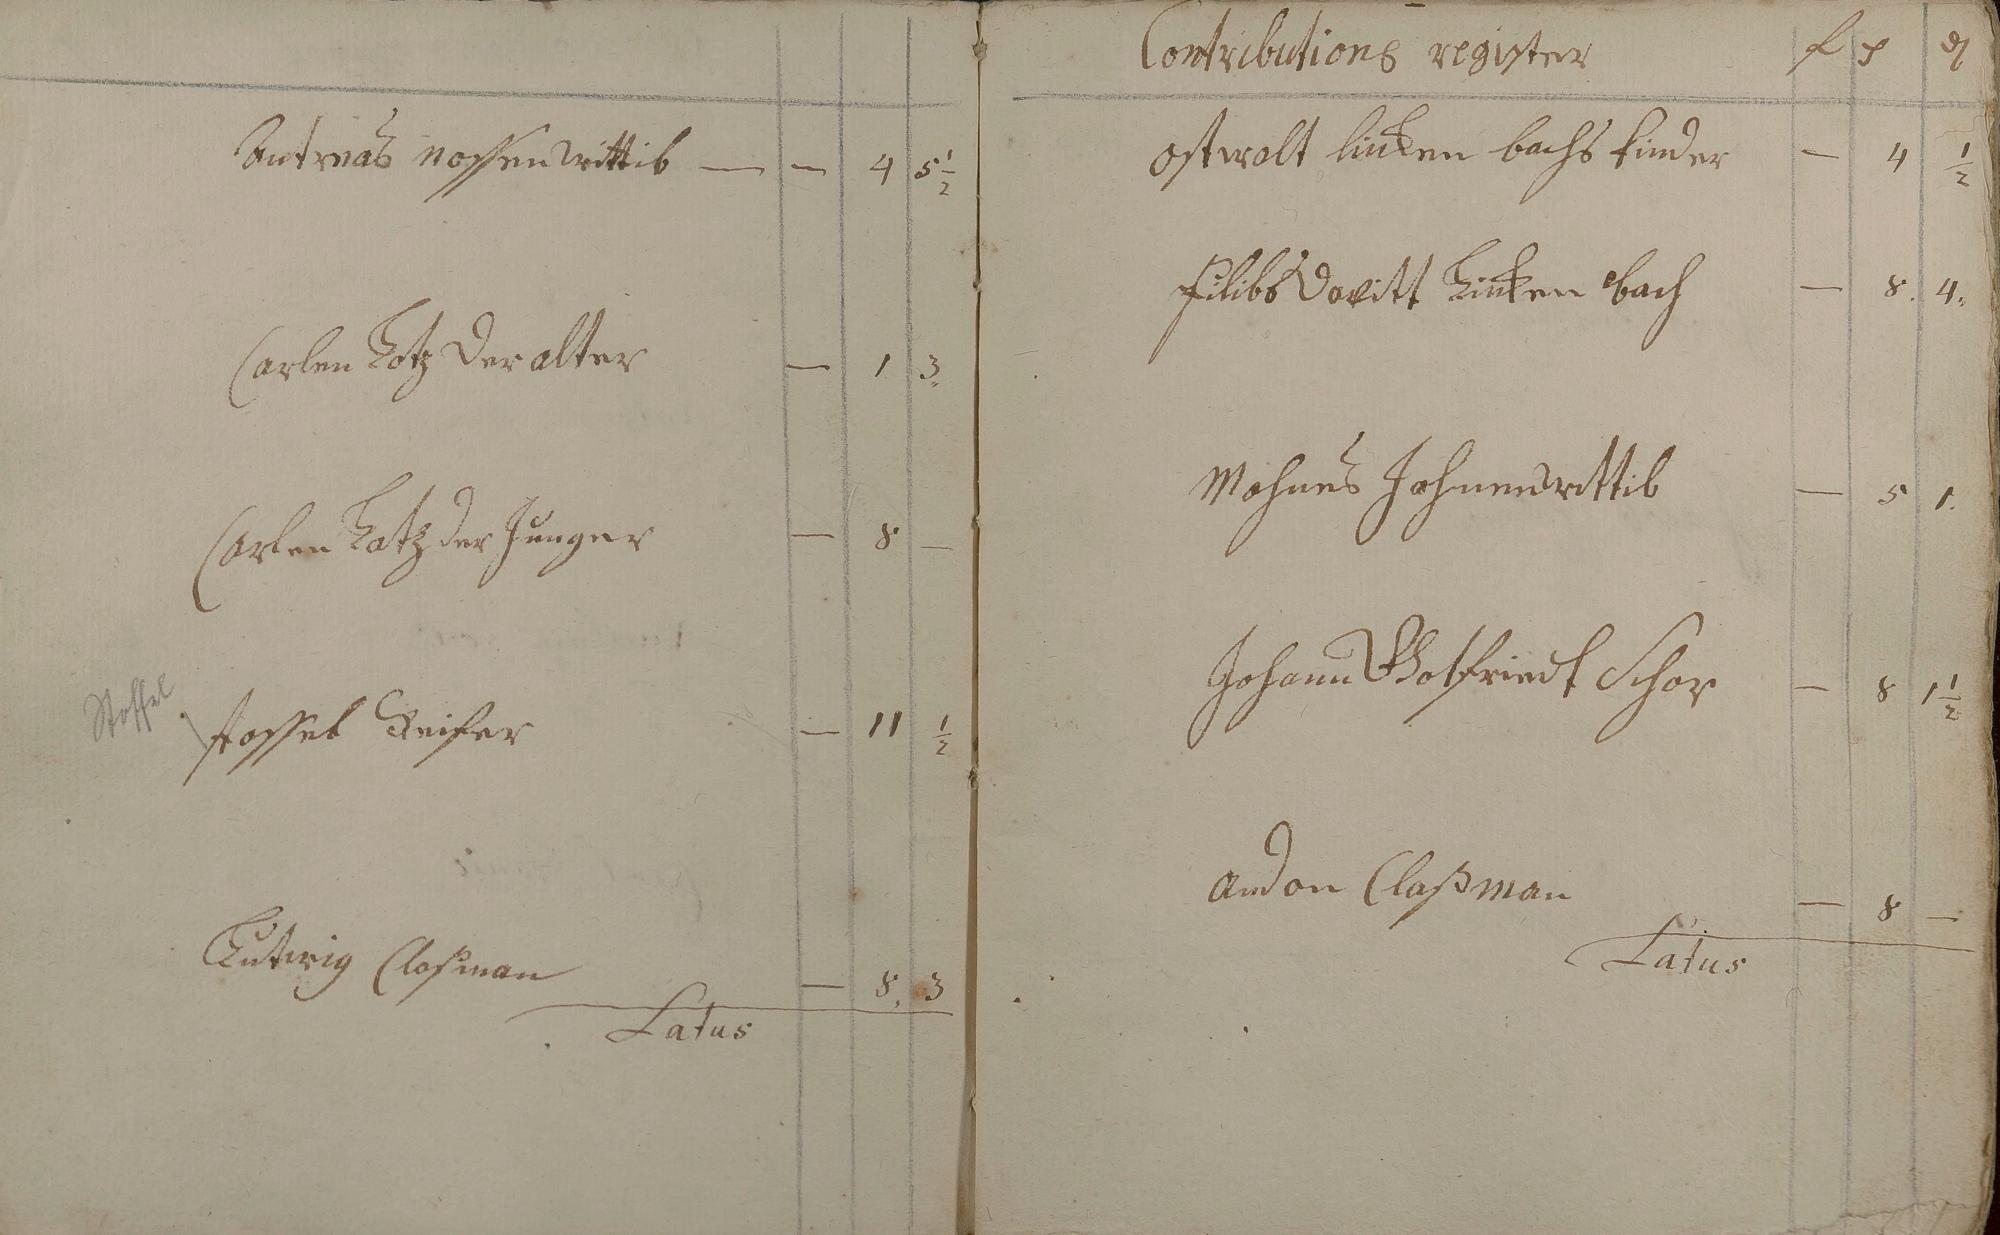 Antreas nossen Wittib — — 4 5 1/2
Carlen Lotz Der alter — 1 3
Carlen Lotz der Junger — 8 —
Stoffel
stoffel Keifer — 11 1/2
Lutwig Closman — 8. 3
Latus
Contributions register f ß ₰
ostwalt linken bachs kinder — 4 1/2
filibs Davitt Linken bach — 8. 4.
Mohnes Johnen Wittib — 5 1.
Johann Gotfriedt Schor — 8 1 1/2
andon Claßman — 8 —
Latus